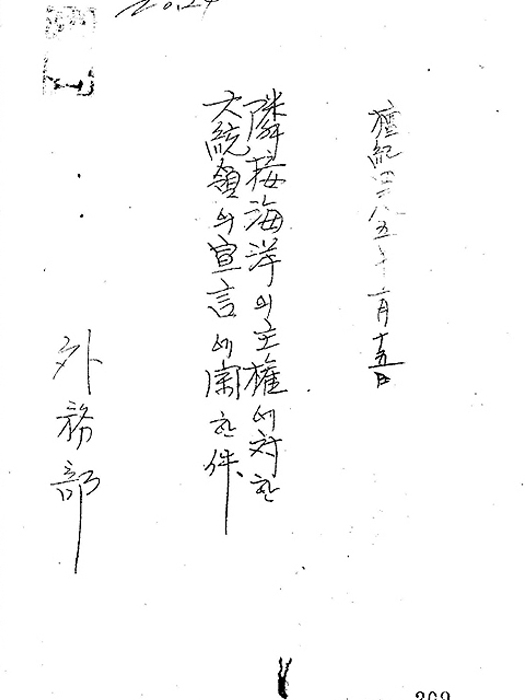 檀紀四二八五年一月十五日
隣接海洋의主權에対한
大統領의宣言에関한件
外務部